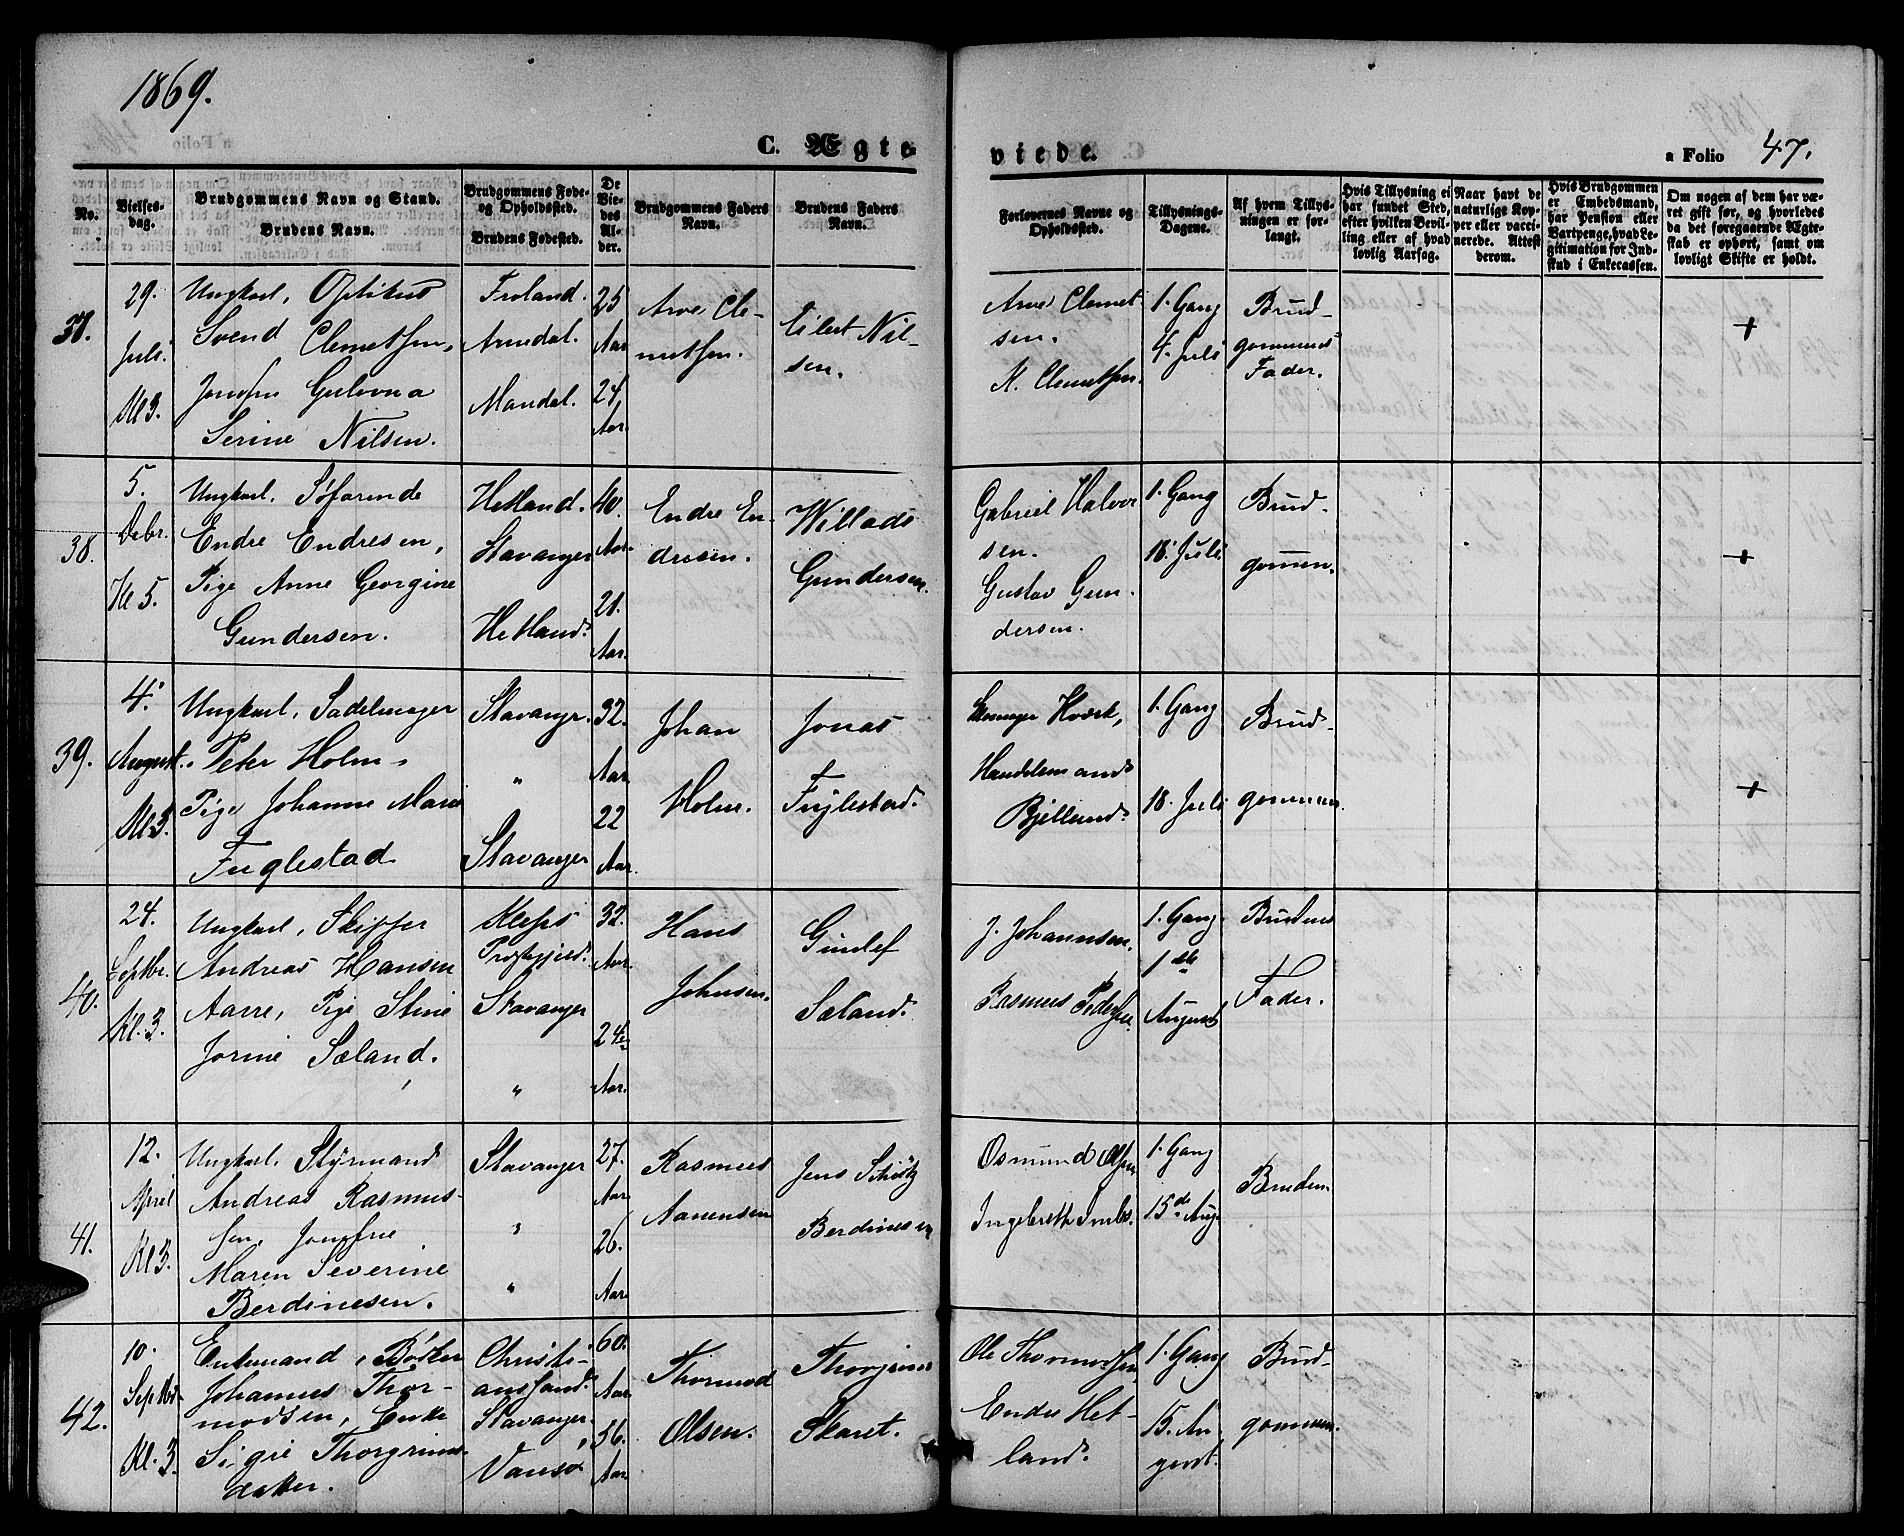 1869.
C. Ægte
viede.
a Folio 47.
No.
Vielses-
dag.
Brudgommens Navn og Stand.
Brudens Navn.
Brudgommens Føde-
og Opholdssted.
Brudens Fødested.
De
Vie-
des
Al-
der.
Brudgommens Faders
Navn.
Brudens Faders
Navn.
Forlovernes Navne og
Opholdssted.
Tillysnings-
Dagene.
Af hvem Tillys-
ningen er for-
langt.
Hvis Tillysning ei
har fundet Sted,
efter hvilken Bevil-
ling eller af hvad
lovlig Aarsag.
Naar havt de
naturlige Kop-
per eller vacci-
nerede. Attest
derom.
Hvis Brudgommen
er Embedsmand,
har Pension eller
Vartpenge, hvad Le-
gitimation for Ind-
skud i Enkecassen.
Om nogen af dem har væ-
ret gift før, og hvorledes
da det foregaaende Ægte-
skab er ophørt, samt om
lovligt Skifte er holdt.
37.
29.
Juli.
Kl 3.
Ungkarl, Optikus
Svend Clemetsen,
Jomfru Gulovna
Serine Nilsen.
Froland.
Arendal.
Mandal.
25
Aar
24,
Aar.
Arve Cle-
metsen.
Eilert Nil-
sen.
Arve Clemet-
sen.
K. Clemetsen.
1. Gang
4. Juli
Brud-
gommens
Fader.
+
38.
5.
Debr.
Kl 5.
Ungkarl. Søfarende
Endre Endresen,
Pige Anne Georgine
Gundersen.
Hetland.
Stavanger
Hetland.
40.
Aar.
21.
Aar.
Endre En-
dresen.
Willads
Gundersen.
Gabriel Halvor
sen.
Gustav Gun-
dersen.
1. Gang
18. Juli
Brud-
gommen.
+
39.
4.
August.
Kl 3.
Ungkarl, Sadelmager
Peter Holm,
Pige Johanne Marie
Fuglestad
Stavanger.
"
Stavanger
32.
Aar
22
Aar.
Johan
Holm.
Jonas
Fuglestad.
Hværk,
Handelsmand
Bjelland.
1. Gang
18. Juli
Brud-
gommen.
+
40.
24.
Septbr.
Kl. 3.
Ungkarl, Skipper
Andreas Hansen
Aarre, Pige Stine
Jorine Sæland.
Kleps
Præstegjeld.
Stavanger
"
32.
Aar.
24
Aar.
Hans
Johnsen.
Gunlef
Sæland.
J. Johannsen.
Rasmus Pedersen.
1. Gang
1ste
August
Brudens
Fader.
41.
12.
April
Kl 3.
Ungkarl. Styrmand
Andreas Rasmus-
sen. Jomfrue
Maren Severine
Berdinesen.
Stavanger
"
"
27.
Aar.
26.
Aar
Rasmus
Aanensen
Jens Schiøtz
Berdinesen
Osmund Olsen
Ingebreth
1. Gang
15de Aug.
Bruden.
42.
10.
Septbr.
Kl. 3.
Enkemand, Bødker
Johannes Thor-
modsen, Enke
Sigri Thorgrims-
datter.
Christi-
ansand.
Stavanger,
Vanse
60.
Aar
56.
Aar
Thormod
Olsen.
Thorgrim
Skaret.
Ole Thormodsen
Endre Het-
land.
1. Gang
15. Au-
gust.
Brud-
gommen.
+